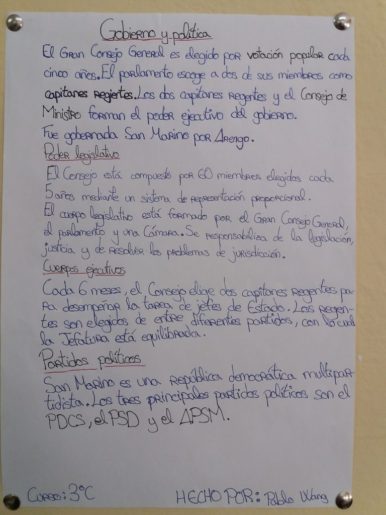 Gobierno y política
El Gran Consejo General es elegido por votación popular cada
cinco años. El parlamento escoge a dos de sus miembros como
capitanes regentes. Los dos capitanes regentes y el Consejo de
Ministro forman el poder ejecutivo del gobierno.
Fue gobernada San Marino por Arengo.
Poder legislativo
El Consejo está compuesto por 60 miembros elegidos cada
5 años mediante un sistema de representación proporcional.
El cuerpo legislativo está formado por el Gran Consejo General,
el parlamento y una Cámara. Se responsabiliza de la legislación,
justicia y de resolver los problemas de jurisdicción.
Cuerpos ejecutivos
Cada 6 meses, el Consejo elige dos capitanes regentes pa-
ra desempeñar la tarea de jefes de Estado. Los regen-
tes son elegidos de entre diferentes partidos, con lo cual
la Jefatura está equilibrada.
Partidos políticos
San Marino es una república democrática multipar-
tidista. Los tres principales partidos políticos son el
PDCS, el PSD y el APSM.
Curso: 3°C HECHO POR: Pablo Wang